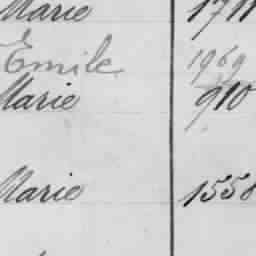 Marie 1711
Emile 1969
Marie 910
Marie 1558